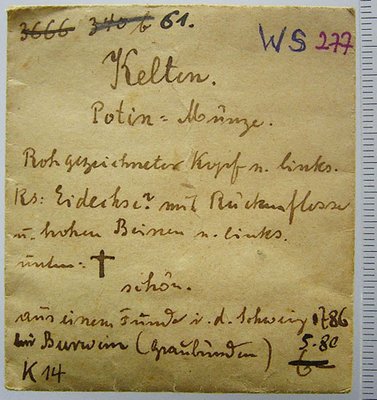 3666 340 b 61.
WS 277
Kelten.
Potin = Münze.
Roh gezeichneter Kopf n. links.
Rs: Eidechse? mit Rückenflosse
u. hohen Beinen n. links.
unten: †
schön.
aus einem Funde i. d. Schweiz 1786
bei Burwein (Graubünden) 5.80
K 14